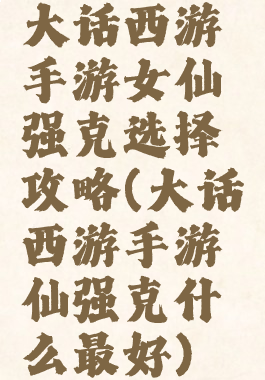 大话西游
手游女仙
强克选择
攻略(大话
西游手游
仙强克什
么最好)